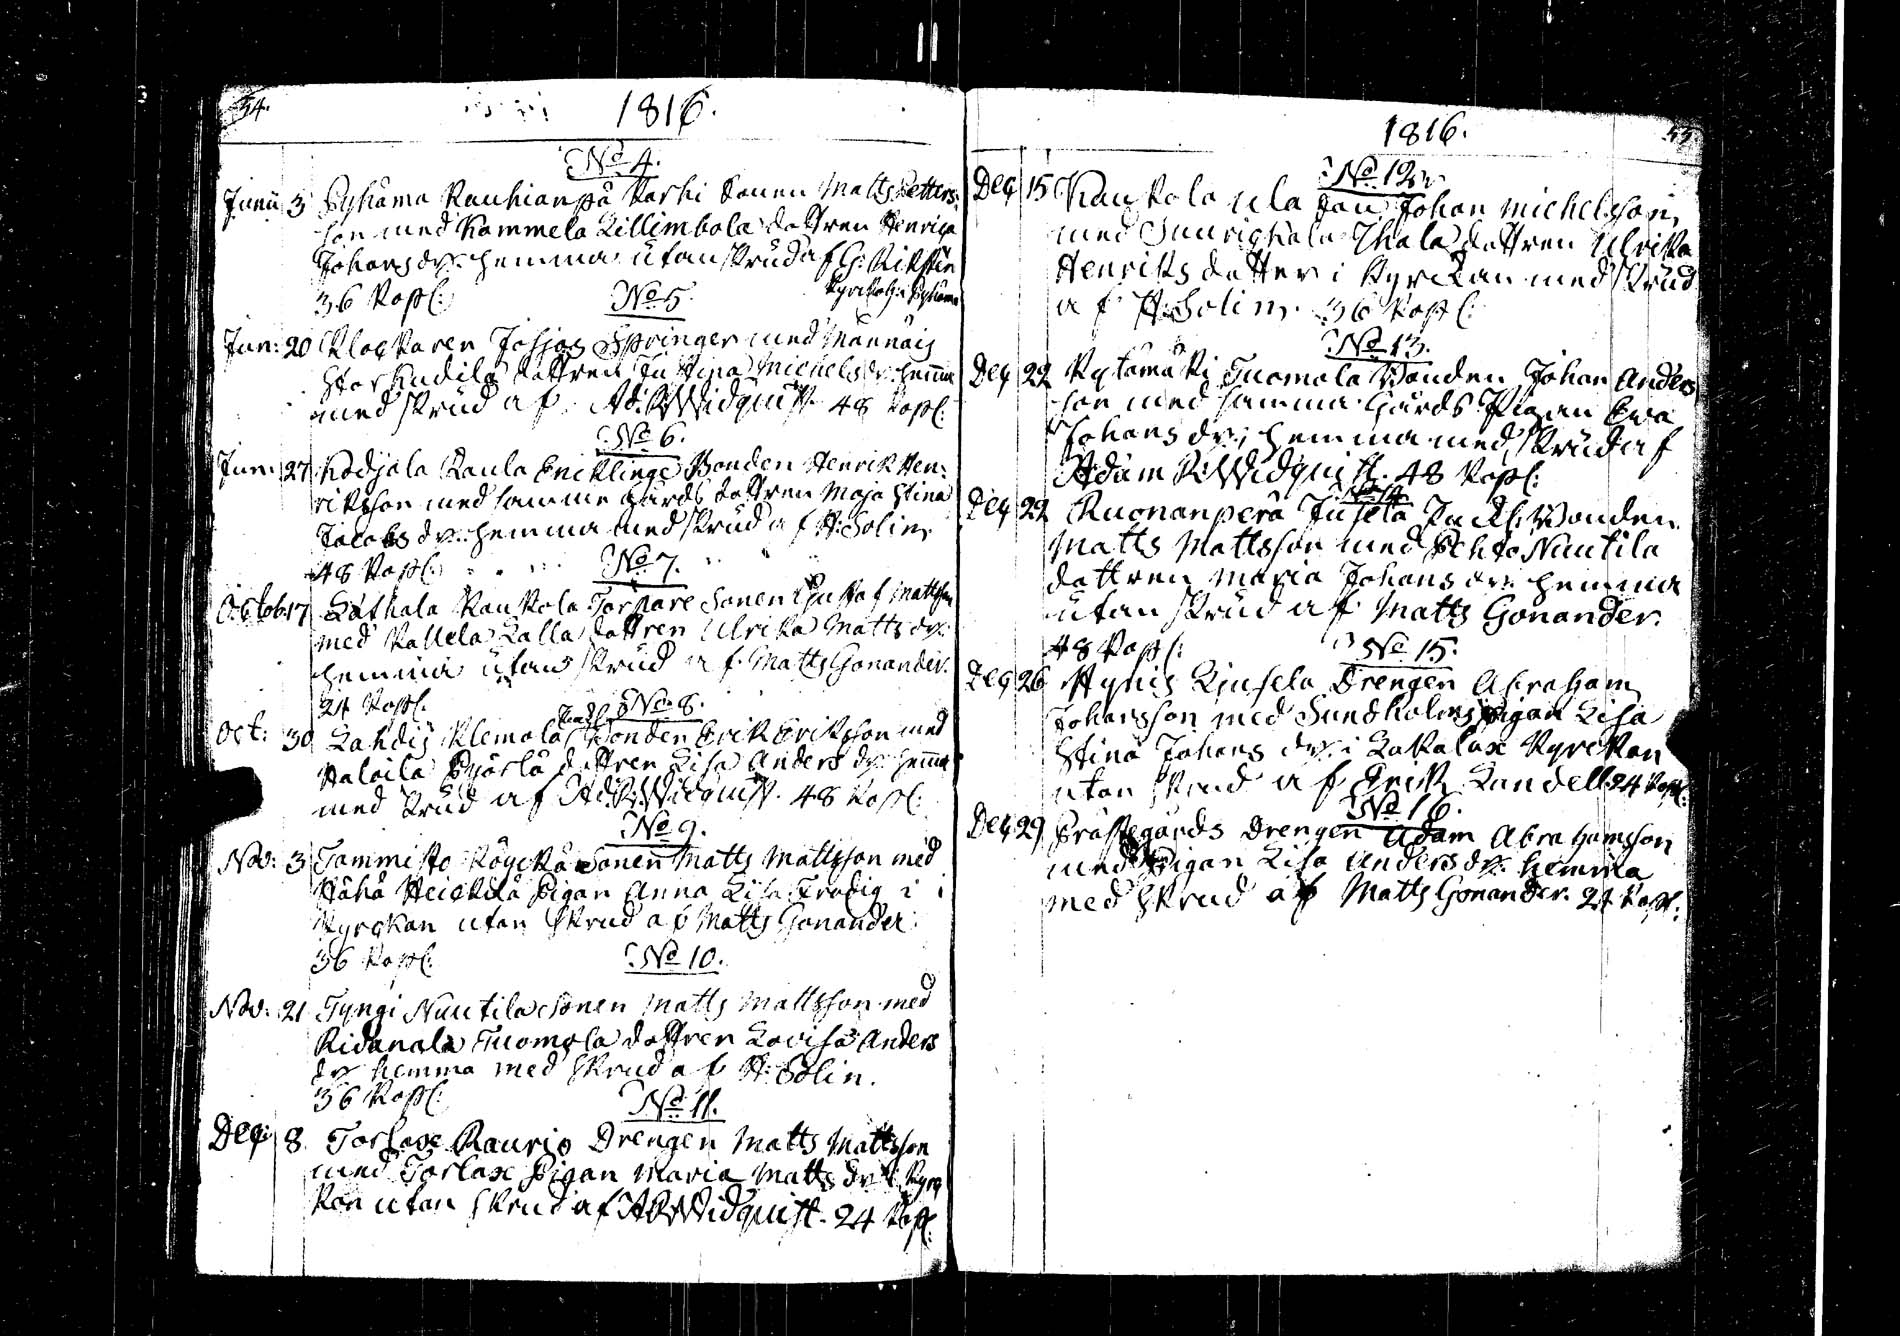 54.
1816.
No 4.
Junii 3 Pyhäma Rauhianpä Karhi Sonen Matts Petters
son med Kammela Killimbola dottren Henrica
Johans dr. hemma utan skrud af G: Rikstén
36 Kop:
Kyrckoh: i Pyhäma
No 5.
Jun: 20 Klockaren Johan Springer med Männäis
Storkudila dottren Justina Michels dr. hema
med skrud af Ad: R: Widquist 48 Kop:
No 6.
Jun: 27 Kodjala Kaula Bonden Henrik Hen-
riksson med samme gårds dottren Maja Stina
Jacobs dr. hemma med skrud af H: Solin
48 Kop:
No 7.
Octob 17 Kaukola Torpare Sonen Gustaf Mattsson
med Kallela Kalla dottren Ulrika Matts dr.
hemma utan skrud af Matts Gonander.
24 Kop:
No 8.
Oct: 30 Lahdis Klemola Bonden Erik Eriksson med
Kaloila Pjörlä dottren Lisa Anders dr. hema
med skrud af Ad: R: Widquist. 48 Kop:
No 9.
Nov: 3 Tammisto Köyckä Sonen Matts Mattsson med
Hähä Heickilä Pigan Anna Lisa i
Kyrckan utan skrud af Matts Gonander.
36 Kop:
No 10.
Nov: 21 Tyngi Nuutila Sonen Matts Mattsson med
Ridanala Tuomola dottren Lovisa Anders
dr hemma med skrud af H: Solin.
36 Kop:
No 11.
Dec: 8 Torlax Raurio Drengen Matts Mattsson
med Torlax Pigan Maria Matts dr i Kyrc
kan utan skrud af AR Widquist. 24 Kop:
1816.
55.
No 12
Dec 15 Kaukola Ula Son Johan Michelsson
med Ihala dottren Ulrika
Henriks dotter i Kyrckan med skrud
af H: Solin. 36 Kop:
No 13.
Dec 22 Kylämäki Tuomola Bonden Johan Anders
son med samma Gårds Pigan Eva
Johans dr, hemma med skrud af
Adam R: Widquist. 48 Kop:
No 14.
Dec 22 Ruonanperä Jusela Bonden
Matts Mattsson med Nuutila
dottren Maria Johans dr. hemma
utan skrud af Matts Gonander.
48 Kop:
No 15.
Dec 26 Hynis Kjusela Drengen Abraham
Johansson med Sundholms Pigan Lisa
Stina Johans dr. i Lakalax Kyrckan
utan skrud af Erik Landell 24 Kop:
No 16.
Dec 29 Prästegårds Drengen Adam Abrahamsson
med Pigan Lisa Anders dr. hemma
med skrud af Matts Gonander. 24 Kop: